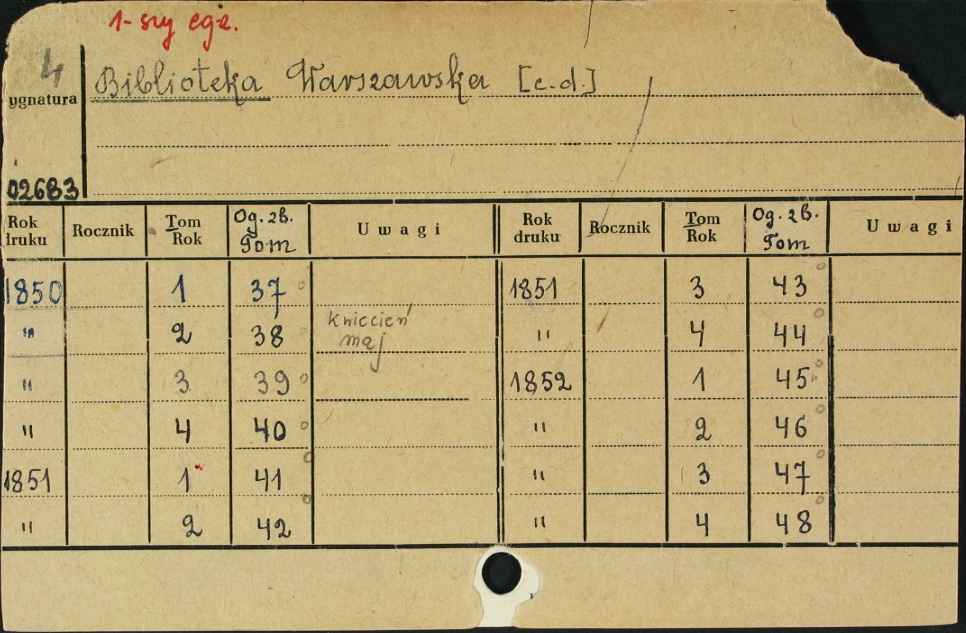 1-szy egz.
4
Biblioteka Warszawska [c.d.]
ygnatura
02683
Rok druku Rocznik Tom Rok Og. zb. Tom Uwagi Rok druku Rocznik Tom Rok Og. zb. Tom Uwagi
1850 1 37 1851 3 43
" 2 38 kwiecień maj " 4 44
" 3 39 1852 1 45
" 4 40 " 2 46
1851 1 41 " 3 47
" 2 42 " 4 48